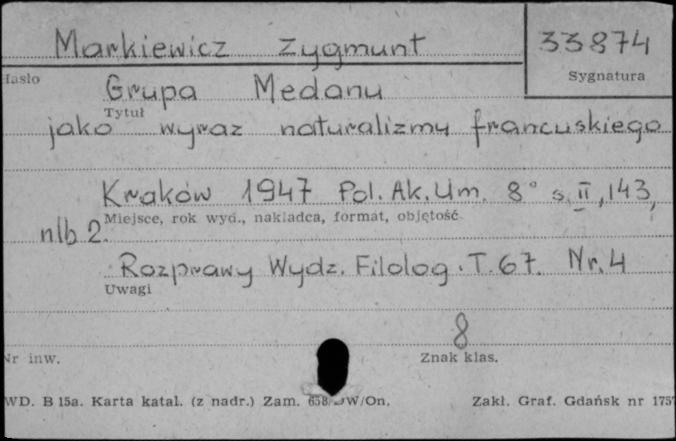 Markiewicz Zygmunt
33874
Hasło
Sygnatura
Grupa Medanu
Tytuł
jako wyraz naturalizmu francuskiego
Kraków 1947 Pol. Ak. Um. 8° s. II, 143,
Miejsce, rok wyd., nakładca, format, objętość
nlb 2.
Rozprawy Wydz. Filolog. T. 67. Nr. 4
Uwagi
8
Nr inw.
Znak klas.
WD. B 15a. Karta katal. (z nadr.) Zam. W/On.
Zakł. Graf. Gdańsk nr 175